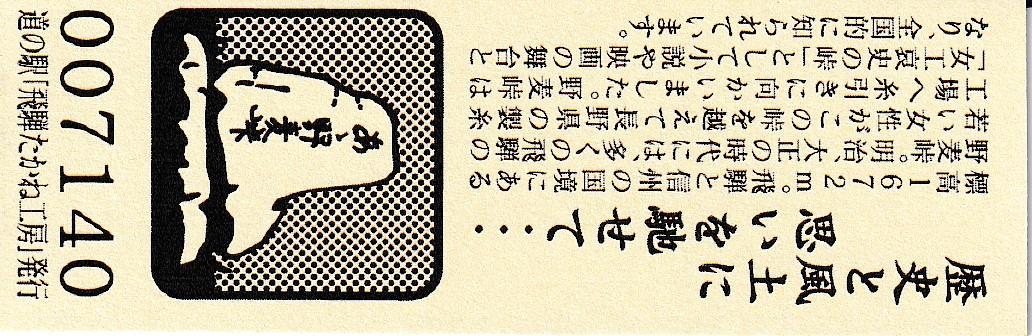 歴史と風土に
思いを馳せて・・・
標高1672m。飛騨と信州の国境にある
野麦峠。明治、大正の時代には、多くの飛騨の
若い女性がこの峠を越えて長野県の製糸
工場へ糸引きに向かいました。野麦峠は
「女工哀史の峠」として小説や映画の舞台と
なり、全国的に知られています。
あゝ野麦峠
007140
道の駅「飛騨たかね工房」発行